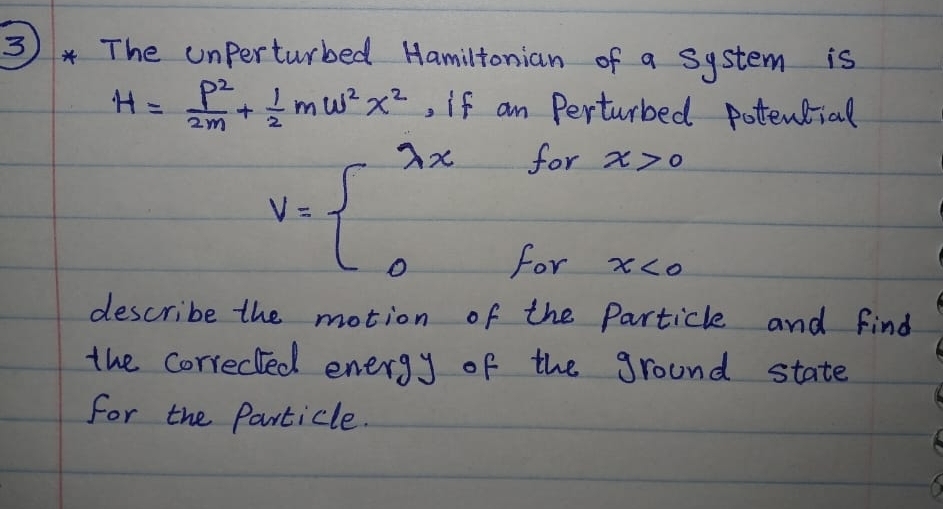 3 * The unperturbed Hamiltonian of a System is
H = P²/2m + 1/2 mw²x² , if an Perturbed potential
V = { λx for x>0
0 for x<0
describe the motion of the Particle and find
the corrected energy of the ground state
for the Particle.